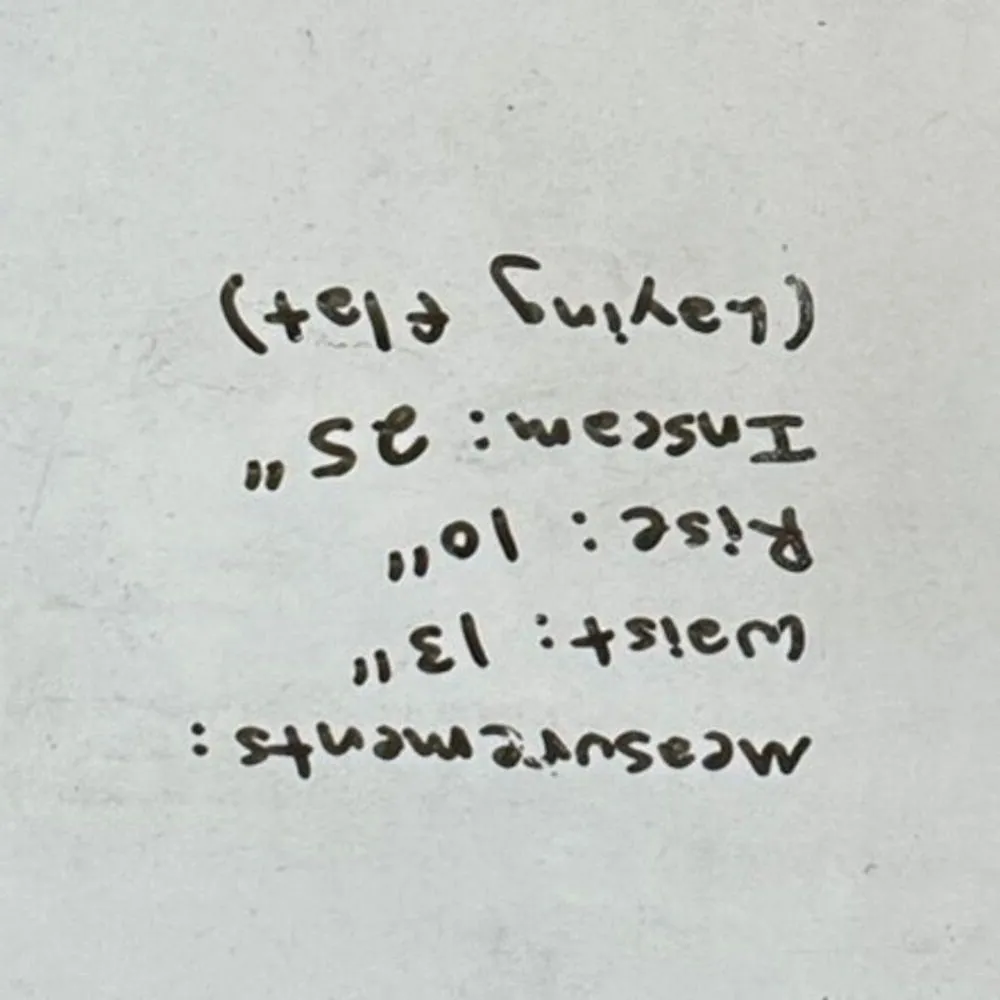 Measurements:
Waist: 13"
Rise: 10"
Inseam: 25"
(Laying flat)